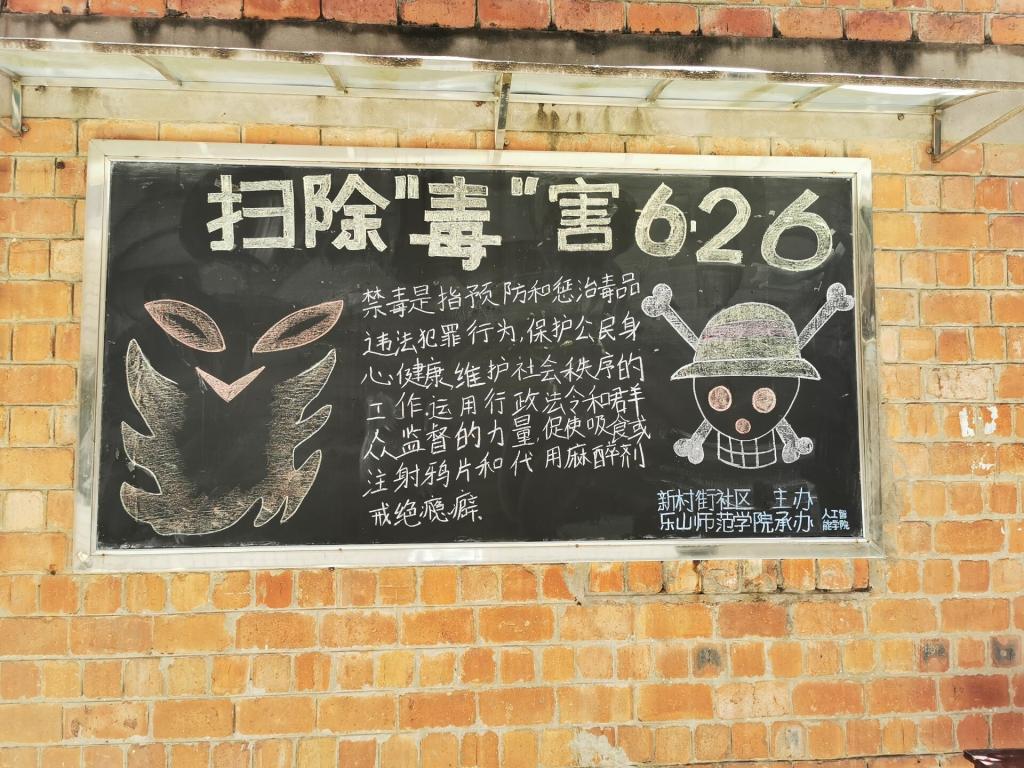 扫除"毒"害 6·26
禁毒是指预防和惩治毒品
违法犯罪行为,保护公民身
心健康,维护社会秩序的
工作运用行政法令和群
众监督的力量,促使吸食或
注射鸦片和代用麻醉剂
戒绝瘾癖.
新村街社区 主办
乐山师范学院承办 人工智能学院